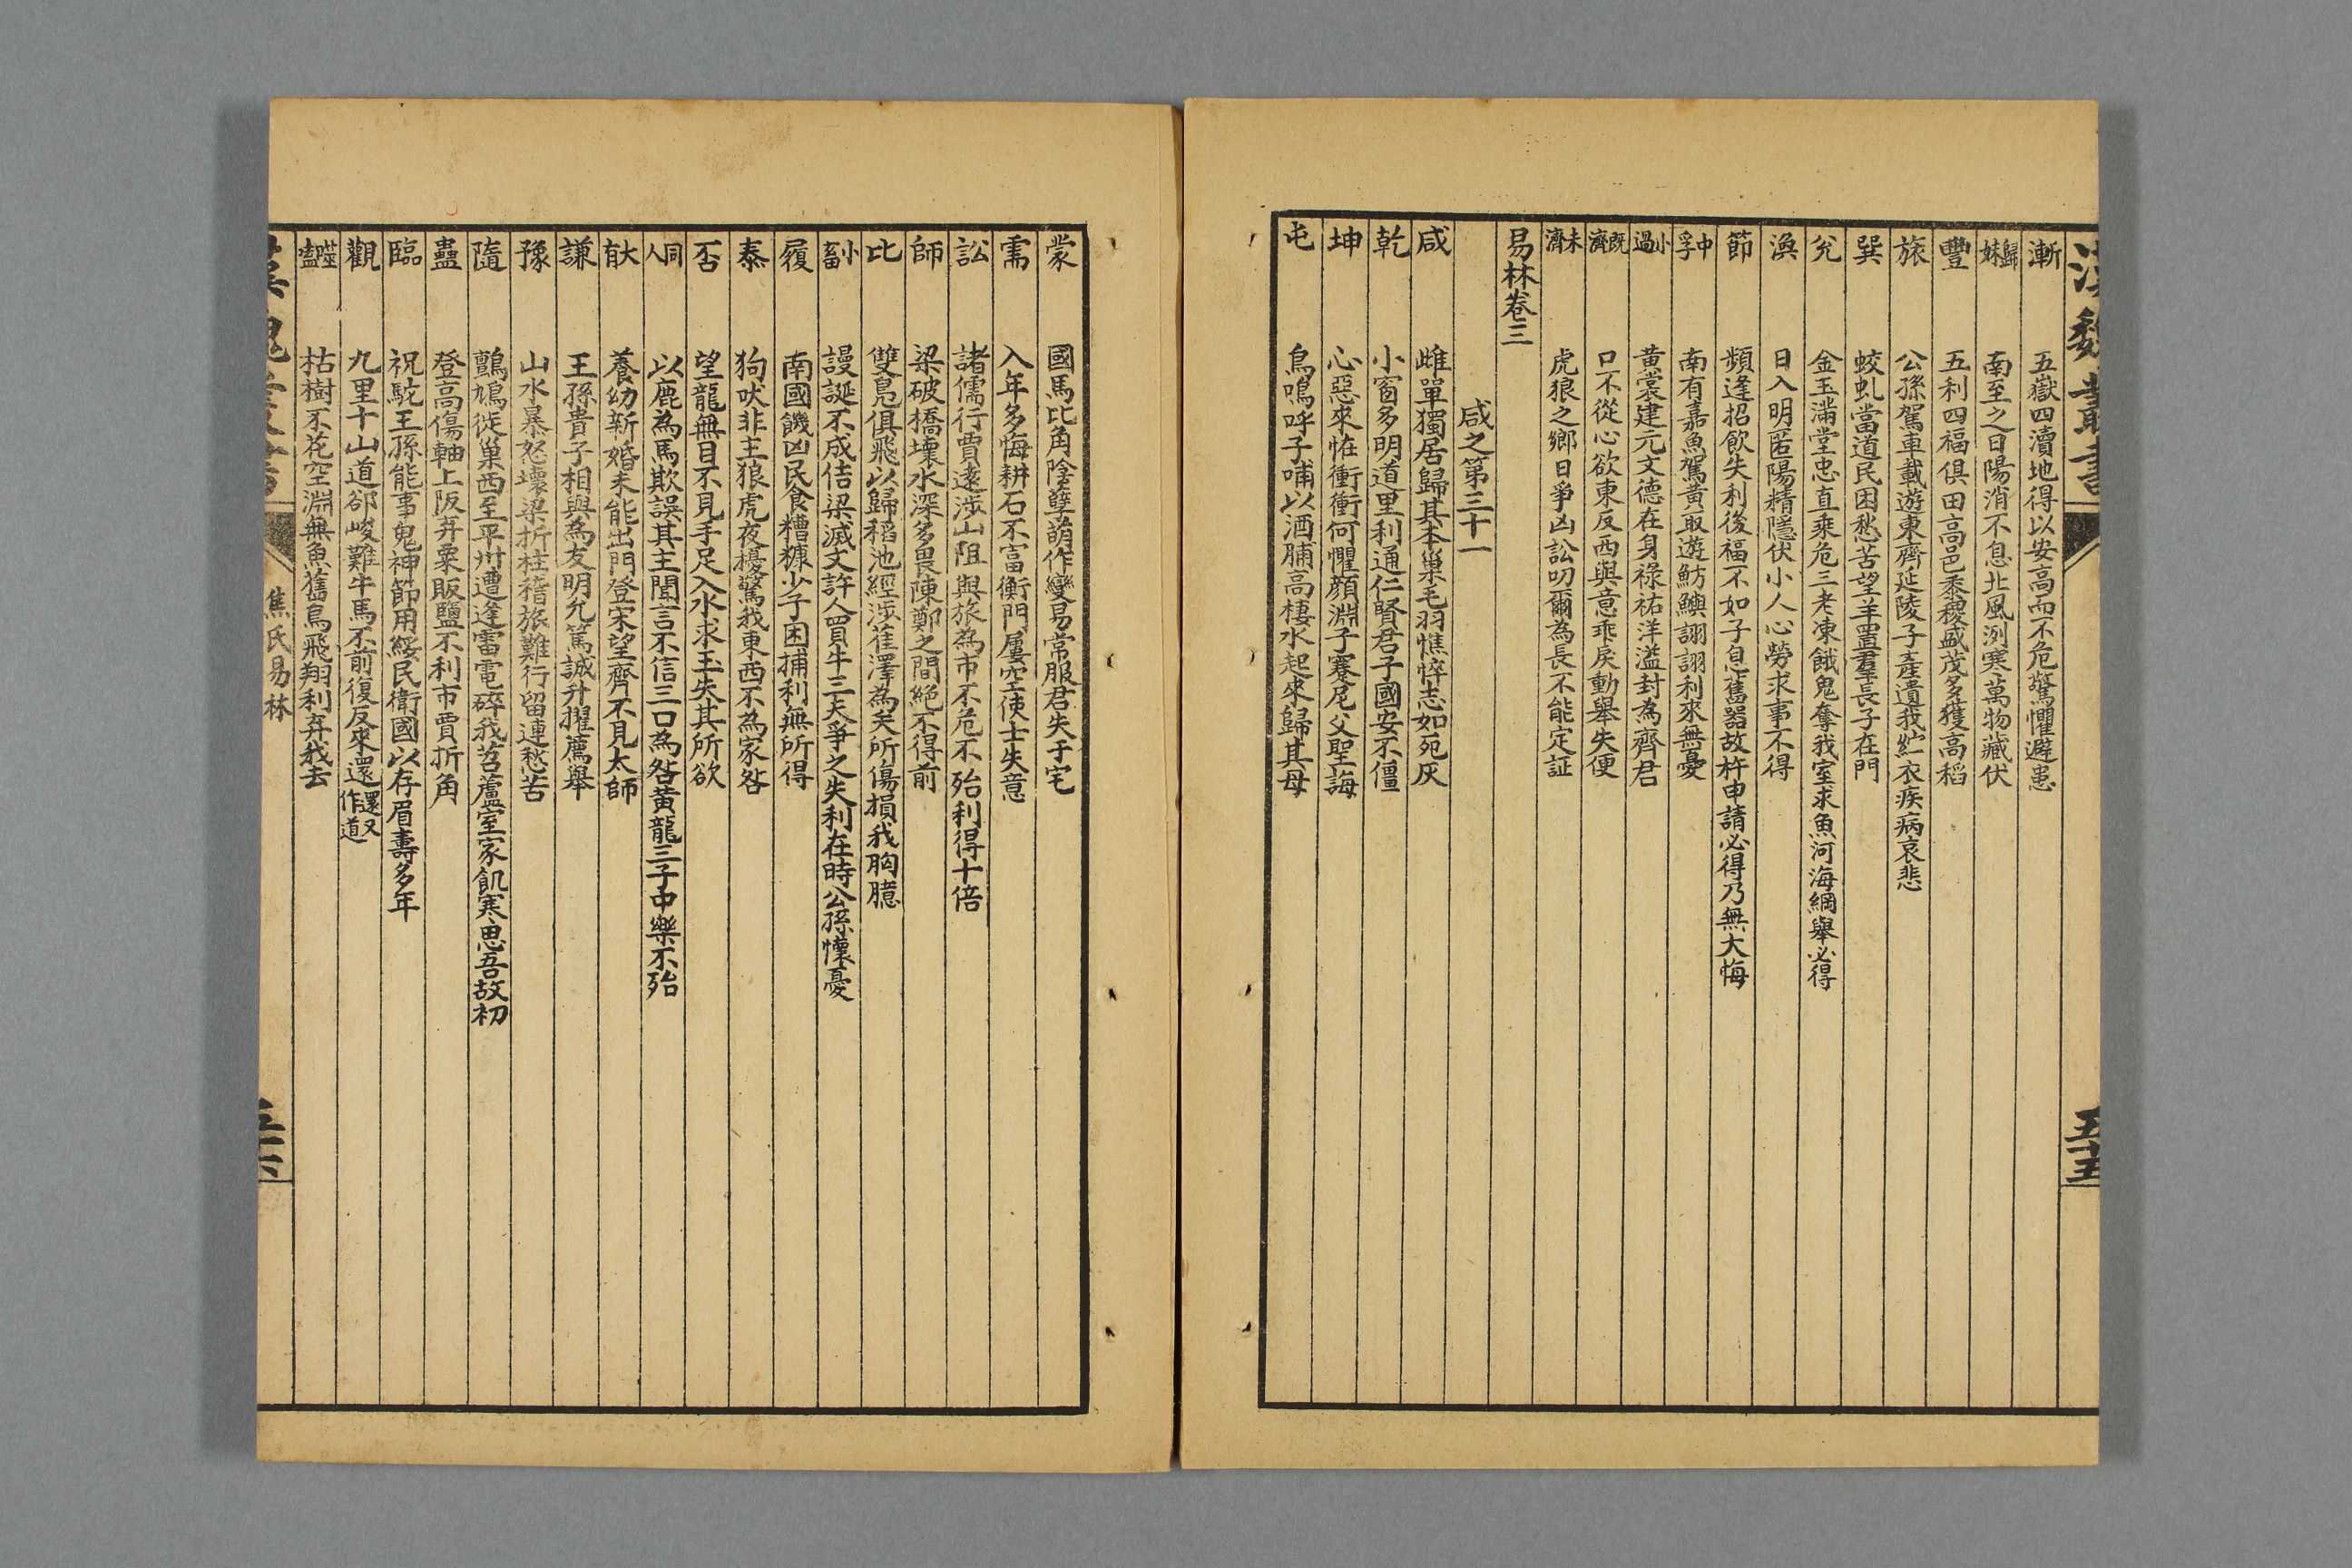 漢魏叢書
五十五
漸 五嶽四瀆地得以安高而不危驚懼避患
歸妹 南至之日陽消不息北風洌寒萬物藏伏
豐 五利四福俱田高邑黍稷盛茂多獲高稻
旅 公孫駕車載遊東齊延陵子產遺我紵衣疾病哀悲
巽 蛟虬當道民困愁苦望羊置羣長子在門
兌 金玉滿堂忠直乘危三老凍餓鬼奪我室求魚河海網舉必得
渙 日入明匿陽精隱伏小人心勞求事不得
節 頻逢招飲失利後福不如子息舊器故杵申請必得乃無大悔
中孚 南有嘉魚駕黃取遊魴鱮詡詡利來無憂
小過 黄裳建元文德在身祿祐洋溢封為齊君
既濟 口不從心欲東反西與意乖戾動舉失便
未濟 虎狼之鄉日爭凶訟叨爾為長不能定証
易林卷三
咸之第三十一
咸 雌單獨居歸其本巢毛羽憔悴志如死灰
乾 小窗多明道里利通仁賢君子國安不僵
坤 心惡來恠衝衝何懼顏淵子騫尼父聖誨
屯 鳥鳴呼子哺以酒脯高棲水起來歸其母
蒙 國馬比角陰孽萌作變易常服君失于宅
需 入年多悔耕石不富衡門屢空使士失意
訟 諸儒行賈遠涉山阻與旅為市不危不殆利得十倍
師 梁破橋壞水深多畏陳鄭之間絕不得前
比 雙鳧俱飛以歸稻池經涉萑澤為矢所傷損我胸臆
小畜 謾誕不成佶梁滅文許人買牛三夫爭之失利在時公孫懷憂
履 南國饑凶民食糟糠少子困捕利無所得
泰 狗吠非主狼虎夜擾驚我東西不為家咎
否 望龍無目不見手足入水求玉失其所欲
同人 以鹿為馬欺誤其主聞言不信三口為咎黄龍三子中樂不殆
大有 養幼新婚未能出門登宋望齊不見太師
謙 王孫貴子相與為友明允篤誠升擢薦舉
豫 山水暴怒壞梁折柱稽旅難行留連愁苦
隨 鸇鳩徙巢西至平州遭逢雷電碎我苕蘆室家飢寒思吾故初
蠱 登高傷軸上阪弃粟販鹽不利市賈折角
臨 祝駝王孫能事鬼神節用綏民衛國以存眉壽多年
觀 九里十山道郤峻難牛馬不前復反來還還又作道
噬嗑 枯樹不花空淵無魚舊鳥飛翔利弃我去
漢魏叢書
焦氏易林
五十六